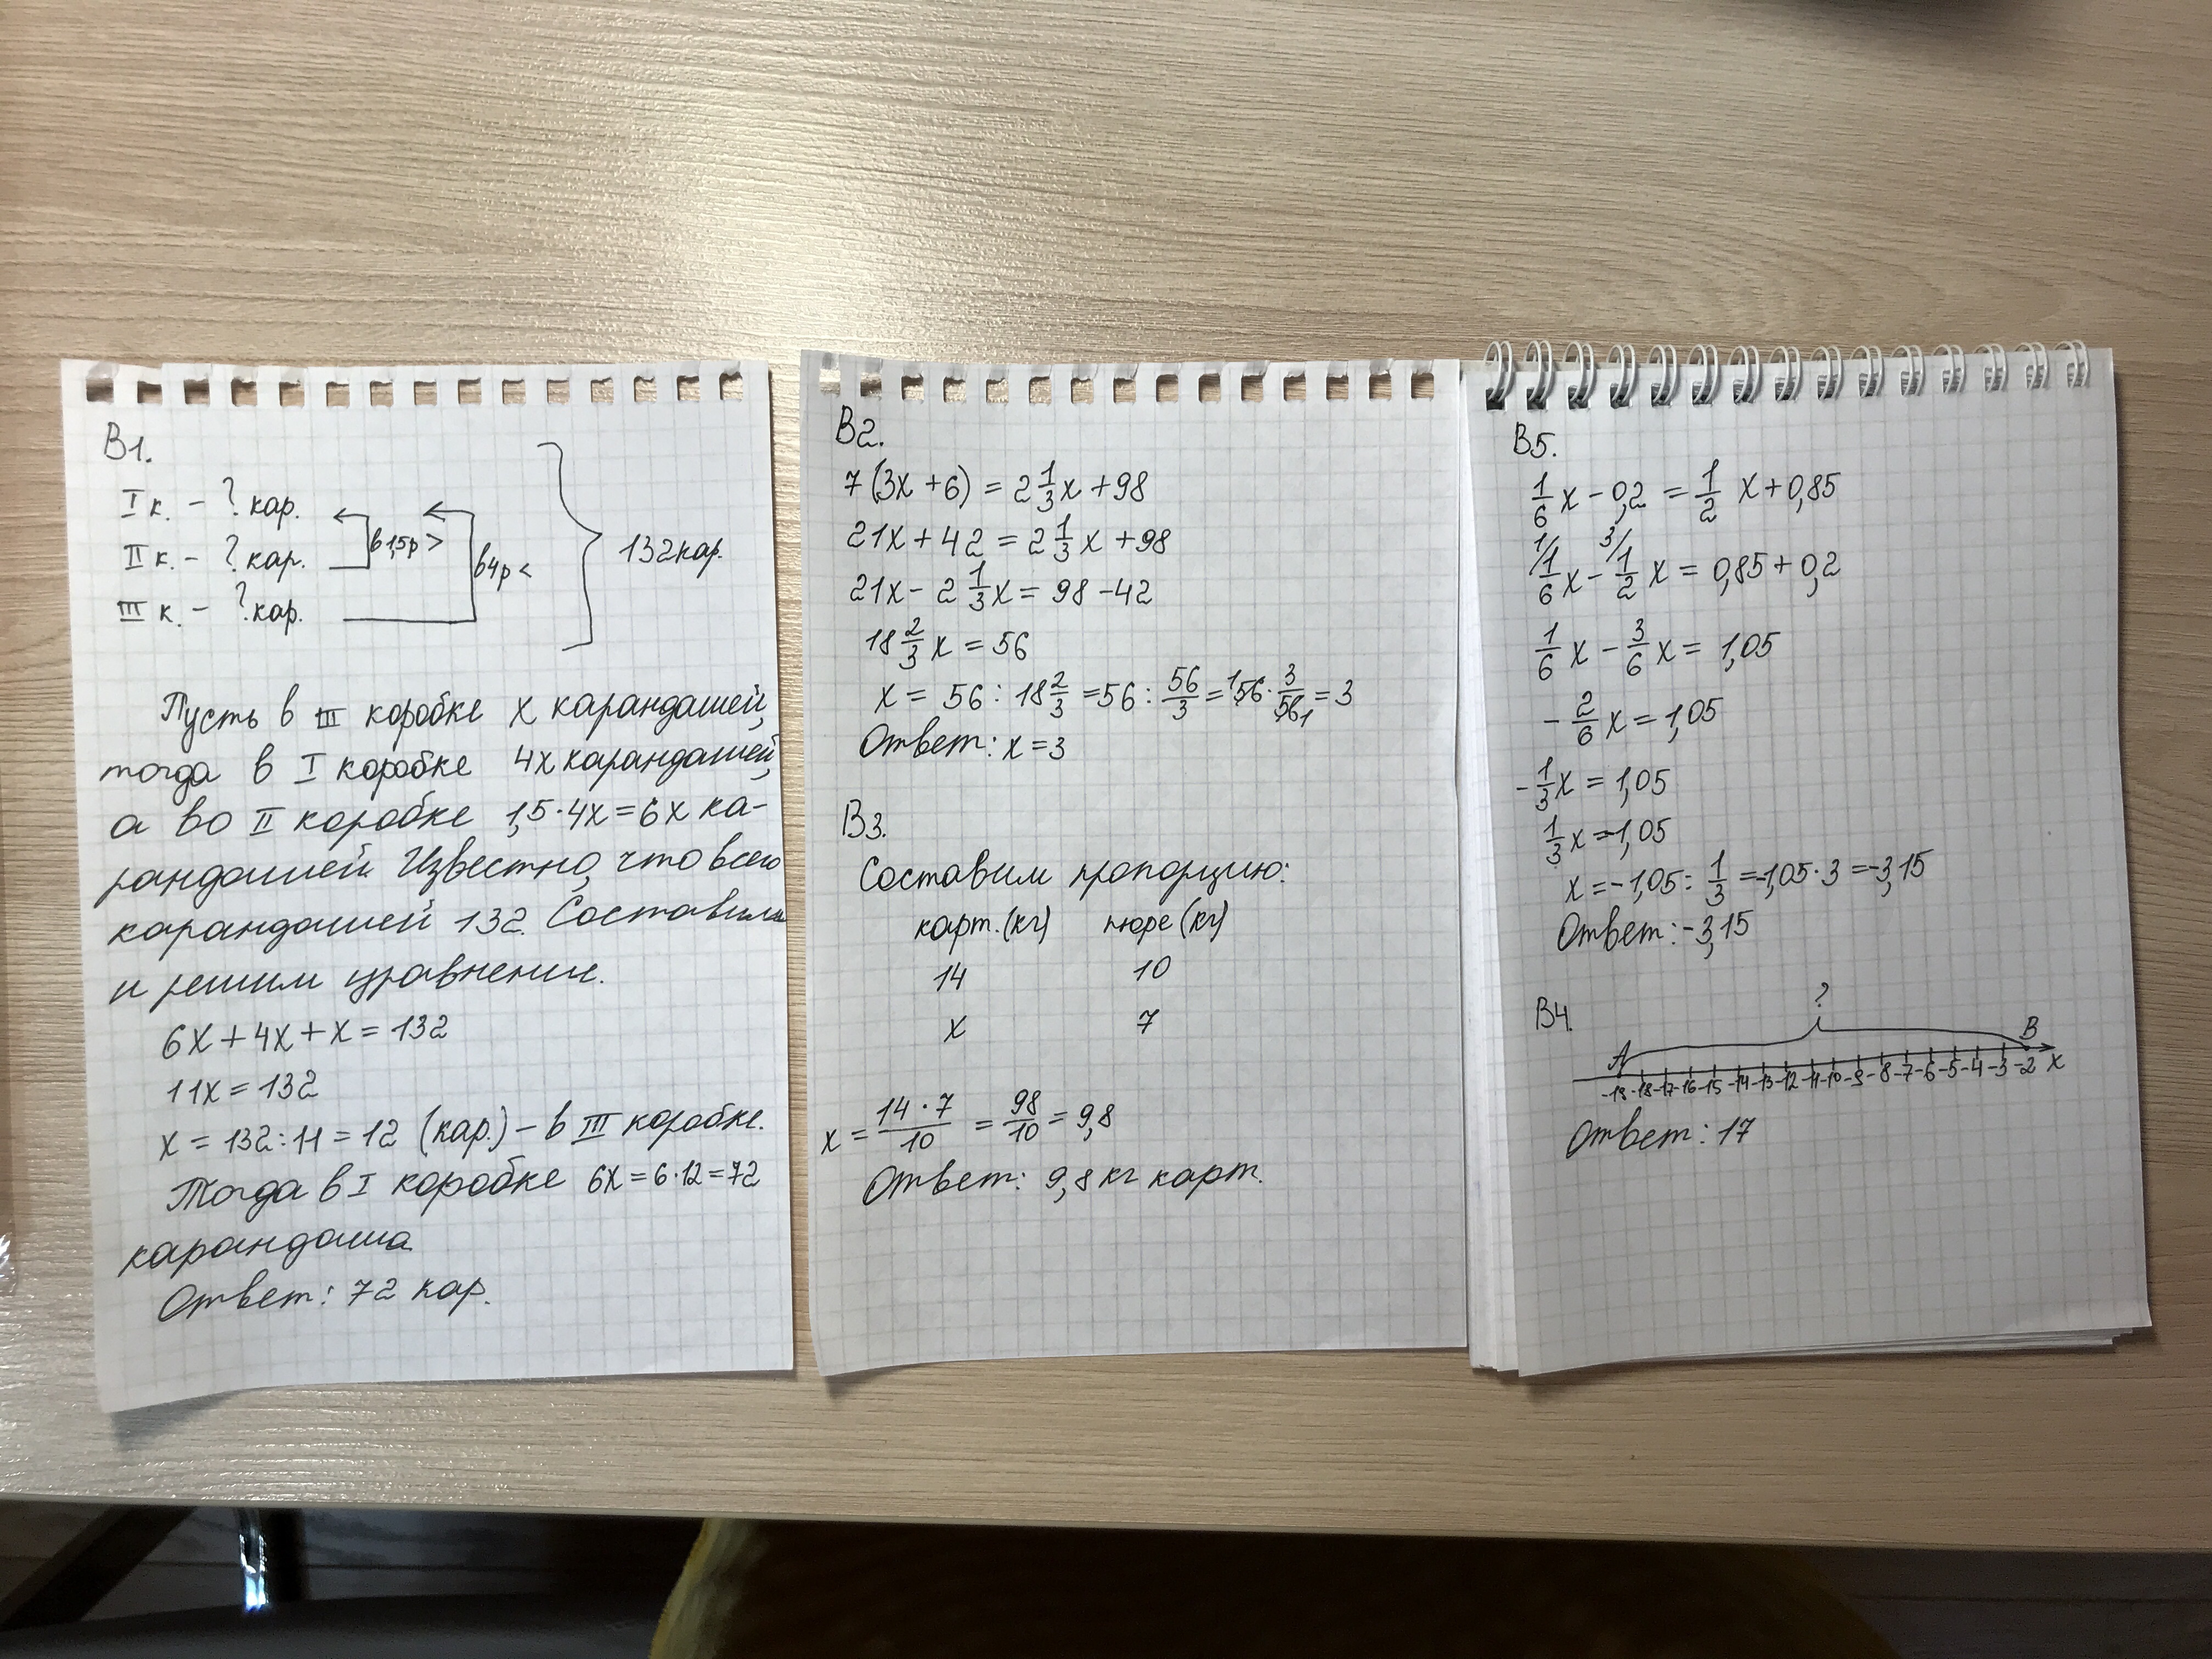 В1.
I к. - ? кар.
II к. - ? кар. в 1,5р >
III к. - ? кар. в 4р <
132 кар.
Пусть в III коробке x карандашей,
тогда в I коробке 4x карандашей,
а во II коробке 1,5·4x=6x ка-
рандашей. Известно, что всего
карандашей 132. Составим
и решим уравнение.
6x+4x+x=132
11x=132
x=132:11=12 (кар.) - в III коробке.
Тогда в I коробке 6x=6·12=72
карандаша
Ответ: 72 кар.
В2.
7(3x+6)=2 1/3 x+98
21x+42=2 1/3 x+98
21x-2 1/3 x=98-42
18 2/3 x=56
x=56:18 2/3=56:56/3=¹56·3/56₁=3
Ответ: x=3
В3.
Составим пропорцию:
карт.(кг) пюре(кг)
14 10
x 7
x=14·7/10=98/10=9,8
Ответ: 9,8 кг карт.
В5.
1/6 x-0,2=1/2 x+0,85
1/ 3/
1/6 x-1/2 x=0,85+0,2
1/6 x-3/6 x=1,05
-2/6 x=1,05
-1/3 x=1,05
1/3 x=-1,05
x=-1,05:1/3=-1,05·3=-3,15
Ответ: -3,15
В4.
?
A B
-19 -18 -17 -16 -15 -14 -13 -12 -11 -10 -9 -8 -7 -6 -5 -4 -3 -2 x
Ответ: 17